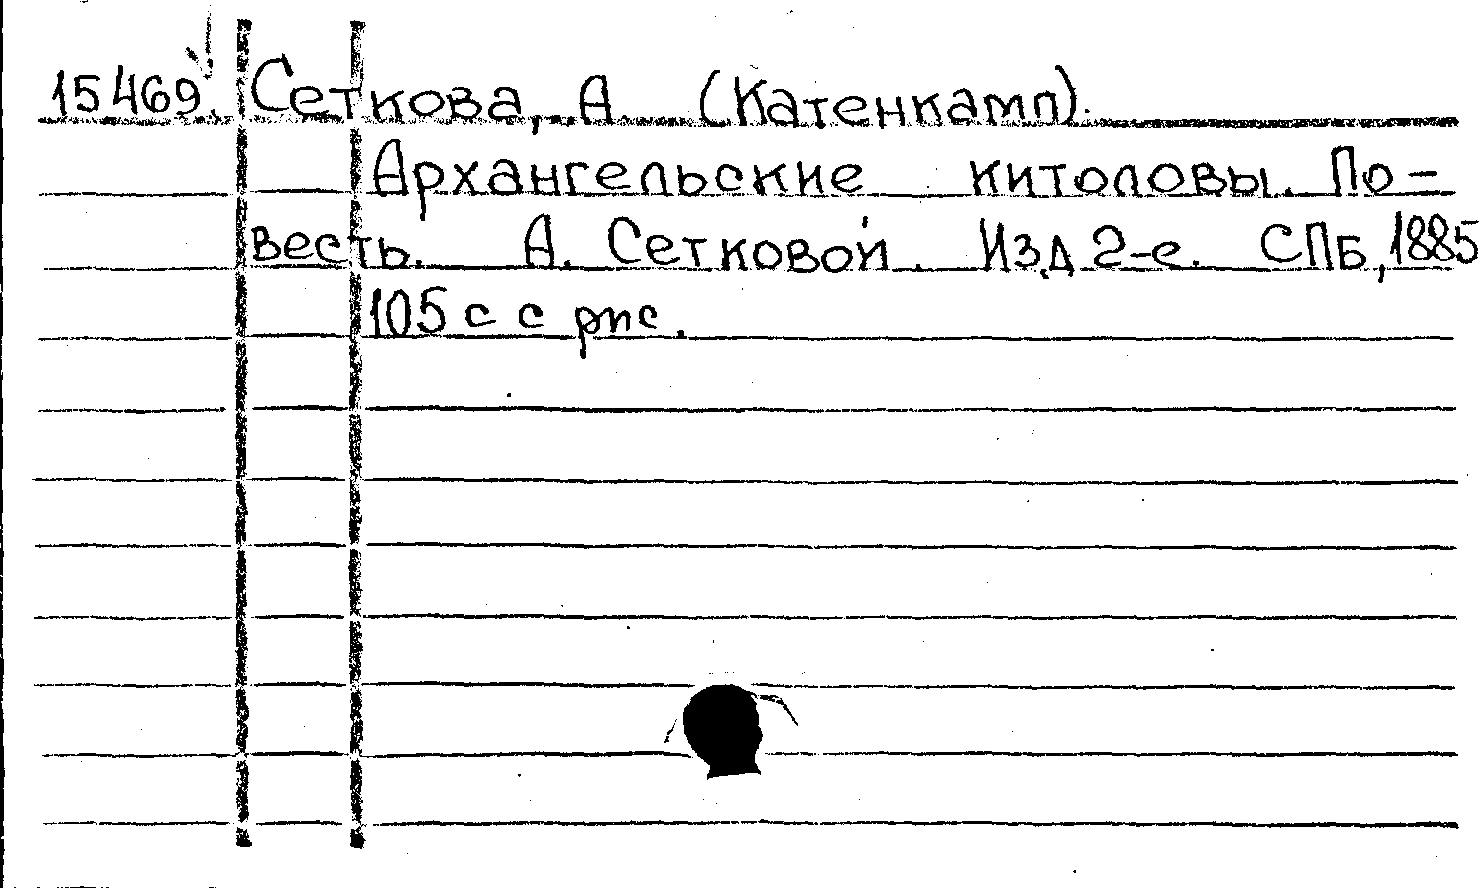 15469. Сеткова, А. (Катенкамп).
Архангельские китоловы. По-
весть. А. Сетковой. Изд 2-е. СПБ, 1885
105 с с рис.